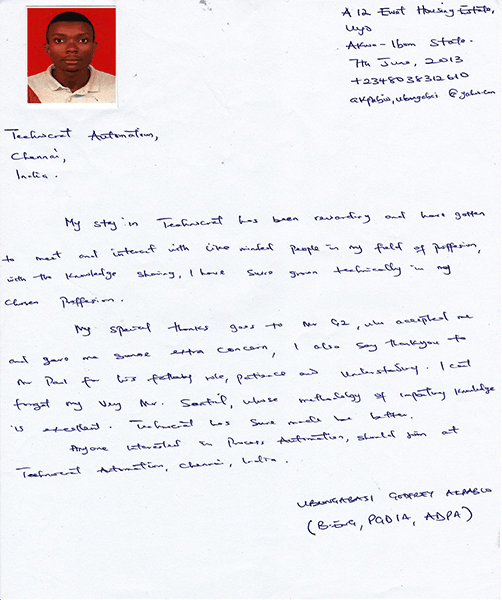 A 12 Ewet Housing Estate,
Uyo
Akwa-Ibom State.
7th June, 2013
+2348038312610
@yahoo.com
Technocrat Automation,
Chennai,
India.
My stay in Technocrat has been rewarding and have gotten
to meet and interact with like minded people in my field of proffesion,
with the knowledge sharing, I have sure grown technically in my
chosen proffesion.
My special thanks goes to Mr G2, who accepted me
and gave me some extra concern, I also say thankyou to
Mr Paul for his fatherly role, patience and understanding. I can't
forget my very Mr. whose methodology of imparting knowledge
is excellent. Technocrat has sure made me better.
Anyone interested in Process Automation, should join at
Technocrat Automation, Chennai, India.
UBONGABASI GODFREY AKPABIO
(B.ENG, PGDIA, ADPA)